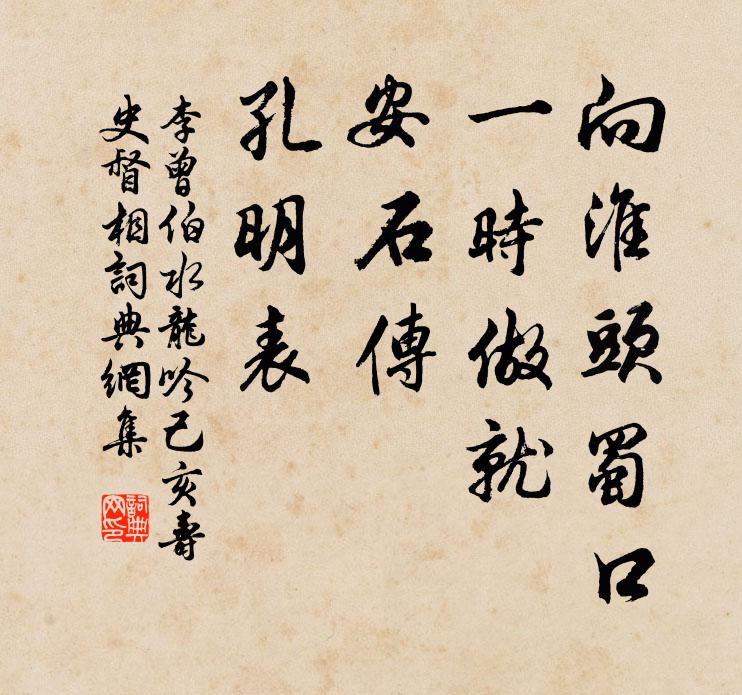 向淮頭蜀口
一時做就
安石傳
孔明表
李曾伯水龍吟己亥壽
史督相詞典網集
詞典
网印